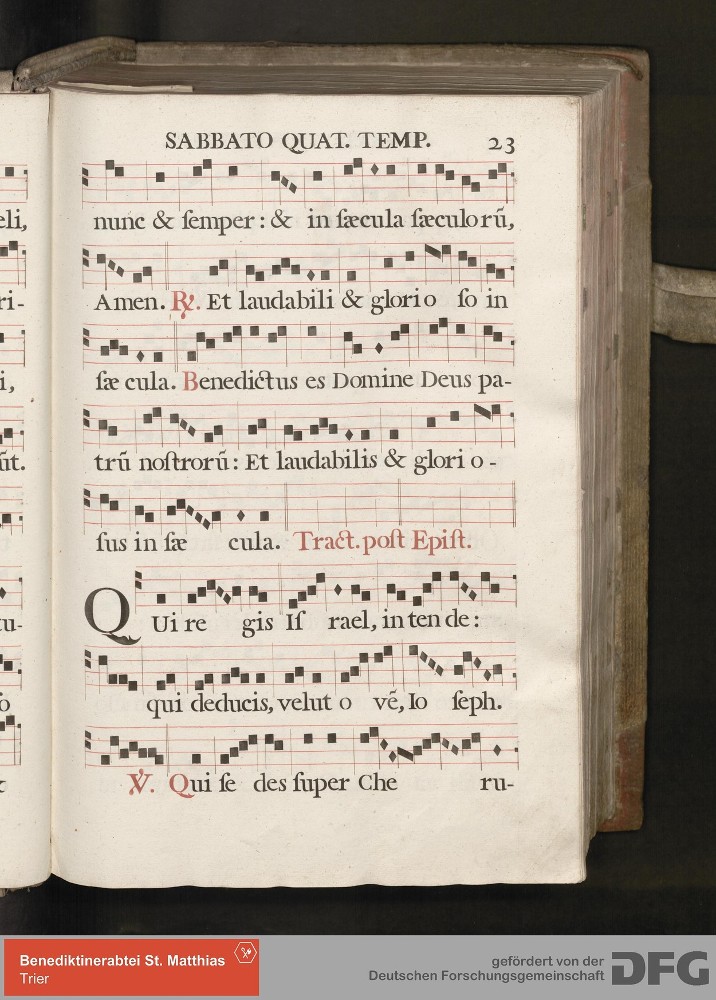 SABBATO QUAT. TEMP. 23
eli,
nunc & ſemper : & in ſæcula ſæculorũ,
ri-
Amen. ℟. Et laudabili & glorio ſo in
i,
ſæ cula. Benedictus es Domine Deus pa-
ũt.
trũ noſtrorũ: Et laudabilis & glori o -
ſus in ſæ cula. Tract. poſt Epiſt.
tu-
QUi re gis Iſ rael, in ten de :
ſo
qui deducis, velut o vẽ, Io ſeph.
℣. Qui ſe des ſuper Che ru-
Benediktinerabtei St. Matthias
Trier
gefördert von der
Deutschen Forschungsgemeinschaft DFG